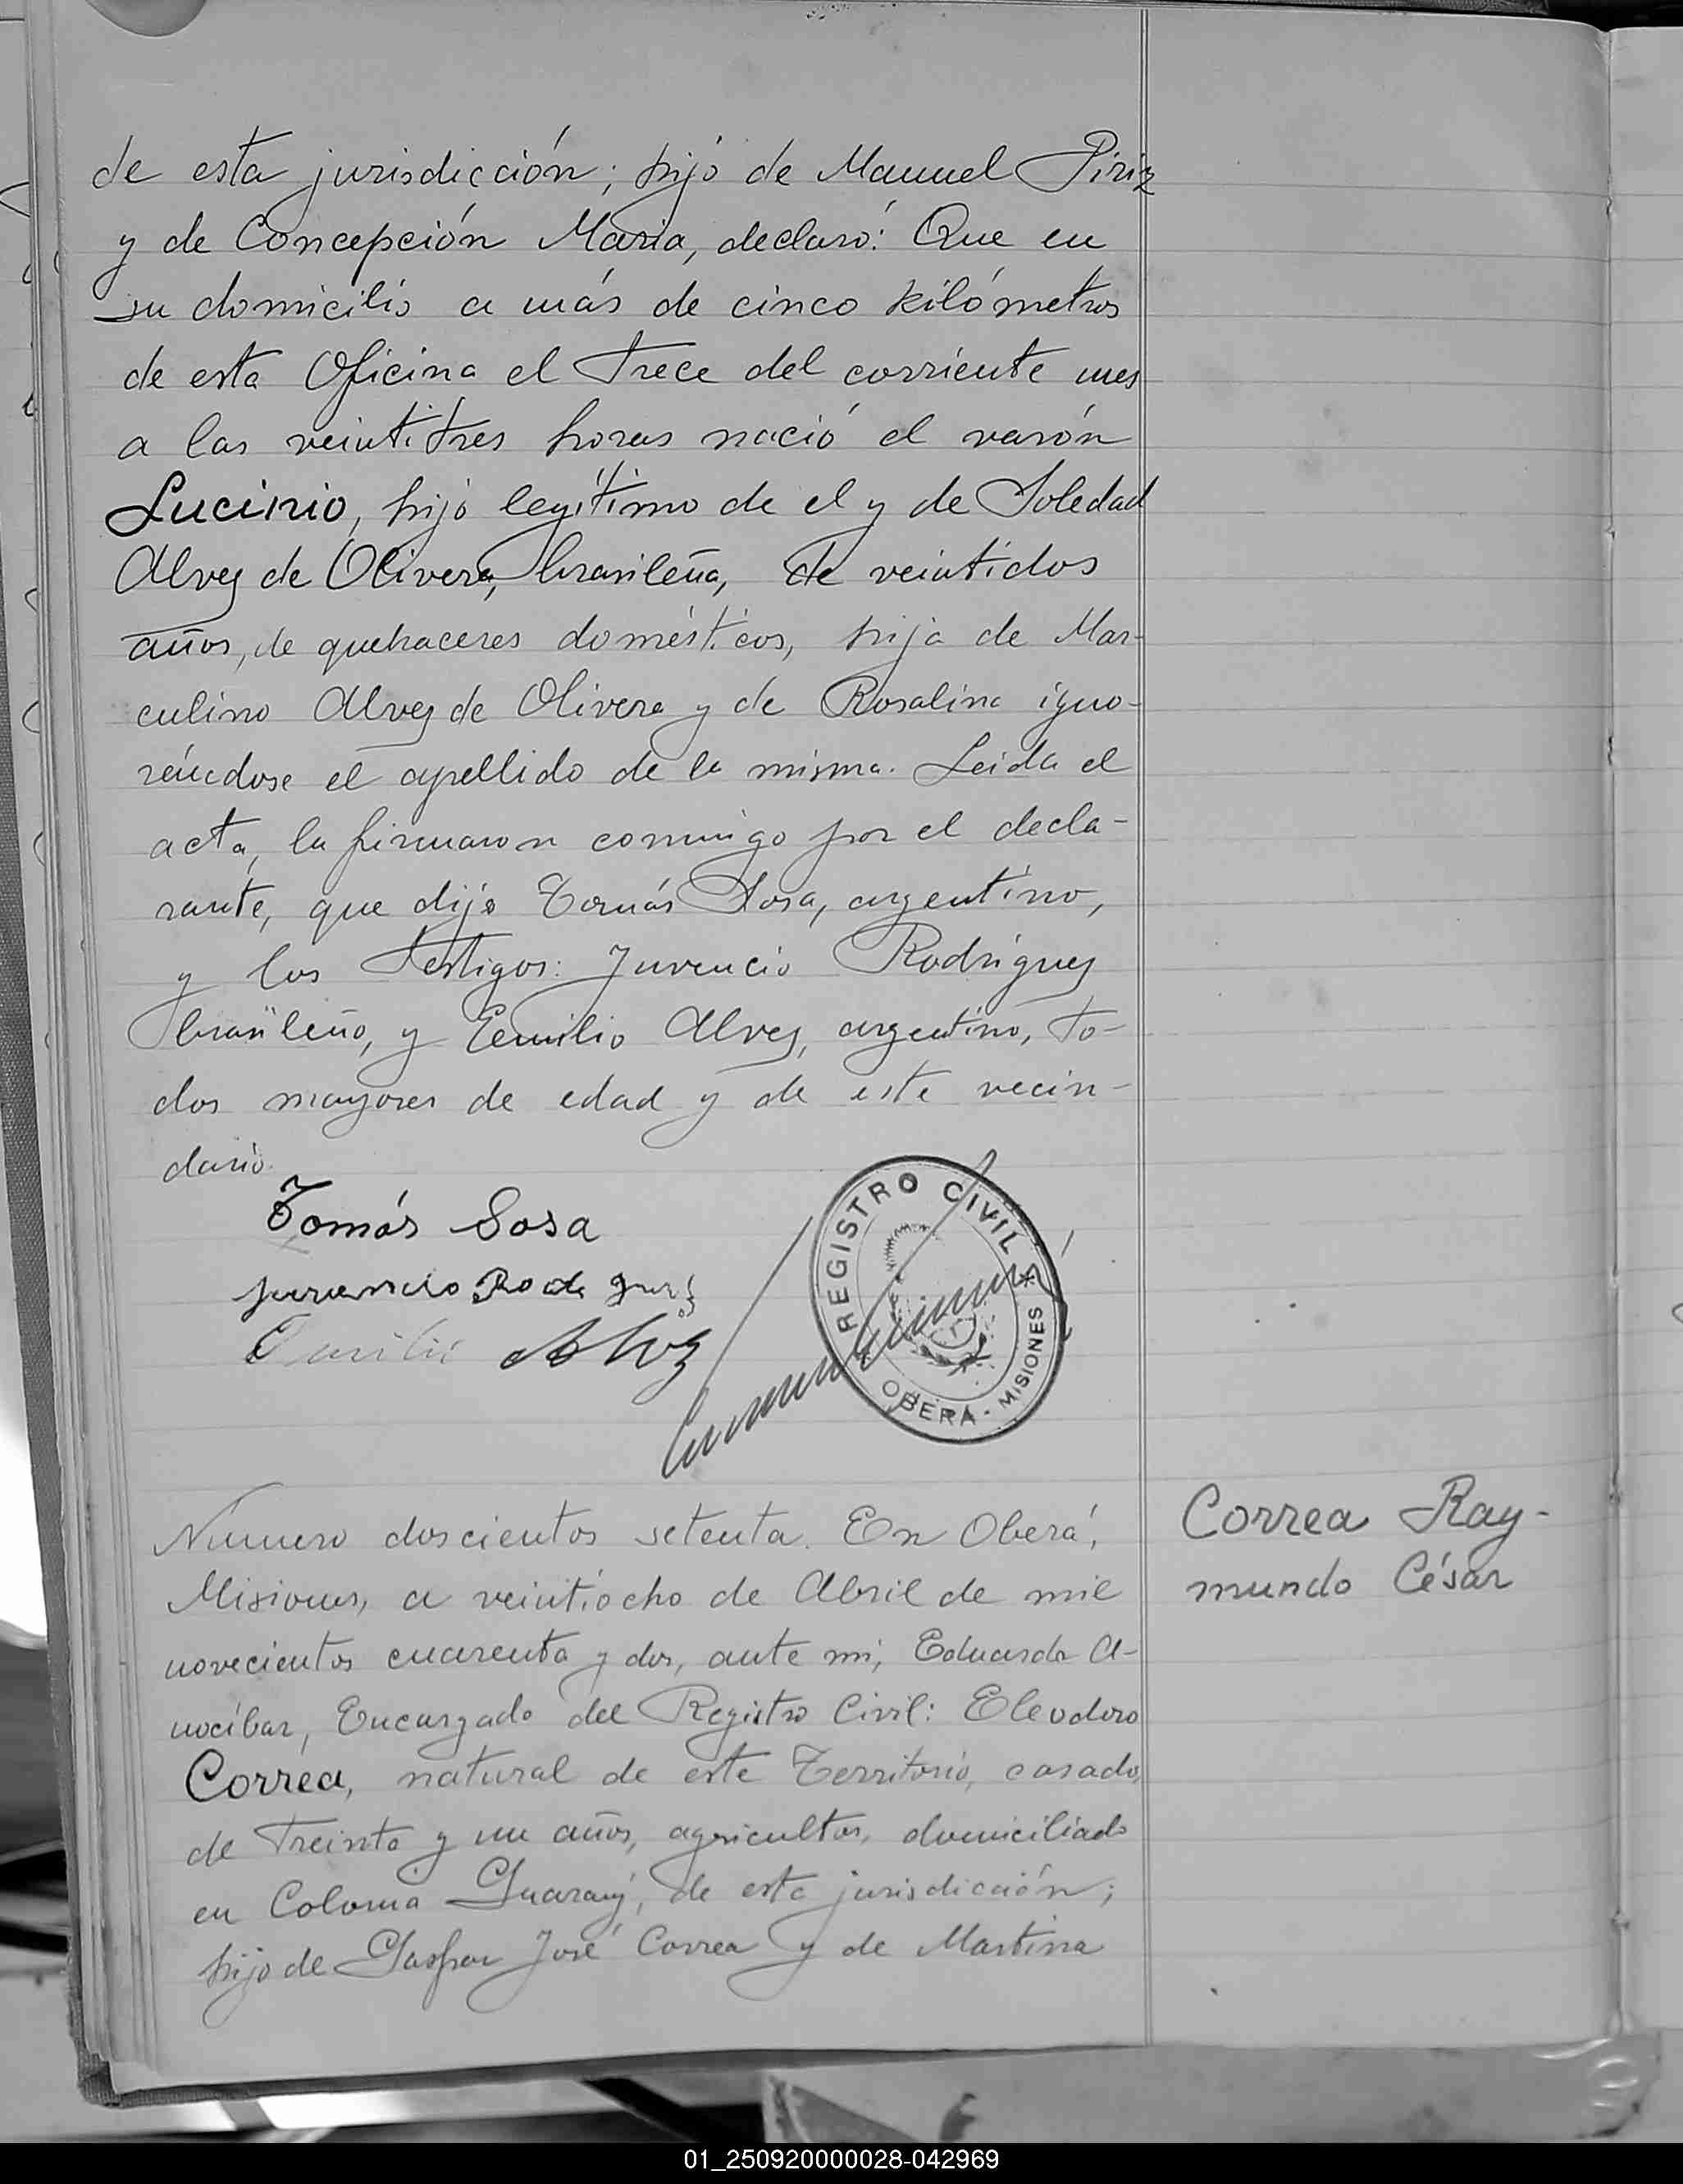 de esta jurisdicción; hijo de Manuel Piriz
y de Concepción Maria, declaró: Que en
su domicilio a más de cinco kilómetros
de esta Oficina el trece del corriente mes
a las veintitres horas nació el varón
Lucinio, hijo legítimo de el y de Soledad
Alves de Olivera, brasileña, de veintidos
años, de quehaceres domésticos, hija de Mar-
culino Alves de Olivera y de Rosalina igno-
rándose el apellido de la misma. Leida el
acta, la firmaron conmigo por el decla-
rante, que dijo Tomás Sosa, argentino,
y los testigos: Juvencio Rodriguez
brasileño, y Emilio Alves, argentino, to-
dos mayores de edad y de este vecin-
dario.
Tomás Sosa
REGISTRO CIVIL
OBERÁ - MISIONES
Emilio Alvez
Número doscientos setenta. En Oberá,
Misiones, a veintiocho de Abril de mil
novecientos cuarenta y dos, ante mi, Eduardo A-
nocíbar, Encargado del Registro Civil: Eleodoro
Correa, natural de este Territorio, casado,
de treinta y un años, agricultor, domiciliado
en Colonia Guaraný, de esta jurisdicción;
hijo de Gaspar José Correa y de Martina
Correa Ray-
mundo César
01_250920000028-042969